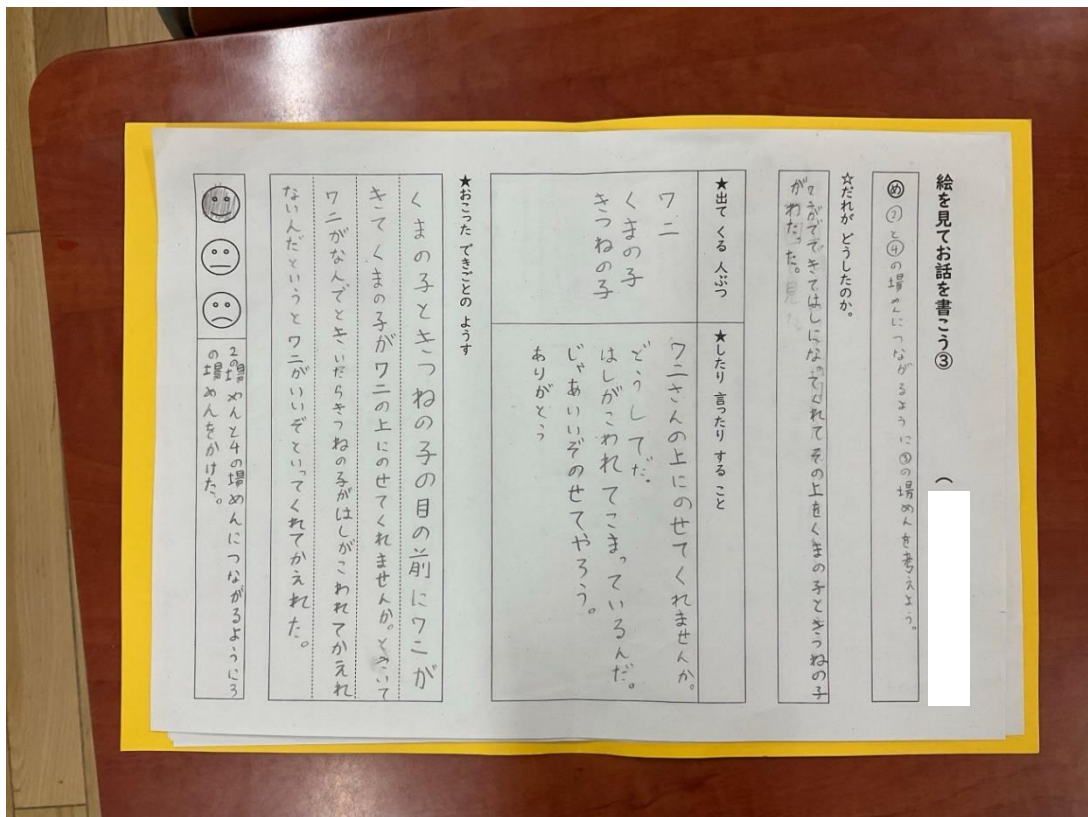 絵を見てお話を書こう③ (
め ②と④の場めんにつながるように③の場めんを考えよう。
☆だれが どうしたのか。
ワニがでてきてはしになってくれてその上をくまの子ときつねの子
がわたった。
★出て くる 人ぶつ
ワニ
くまの子
きつねの子
★したり 言ったり する こと
ワニさんの上にのせてくれませんか。
どうしてだ。
はしがこわれてこまっているんだ。
じゃあいいぞのせてやろう。
ありがとう
★おこった できごとの ようす
くまの子ときつねの子の目の前にワニが
きてくまの子がワニの上にのせてくれませんか。ときいて
ワニがなんでときいたらきつねの子がはしがこわれてかえれ
ないんだというとワニがいいぞといってくれてかえれた。
2の場めんと4の場めんにつながるように3
の場めんをかけた。